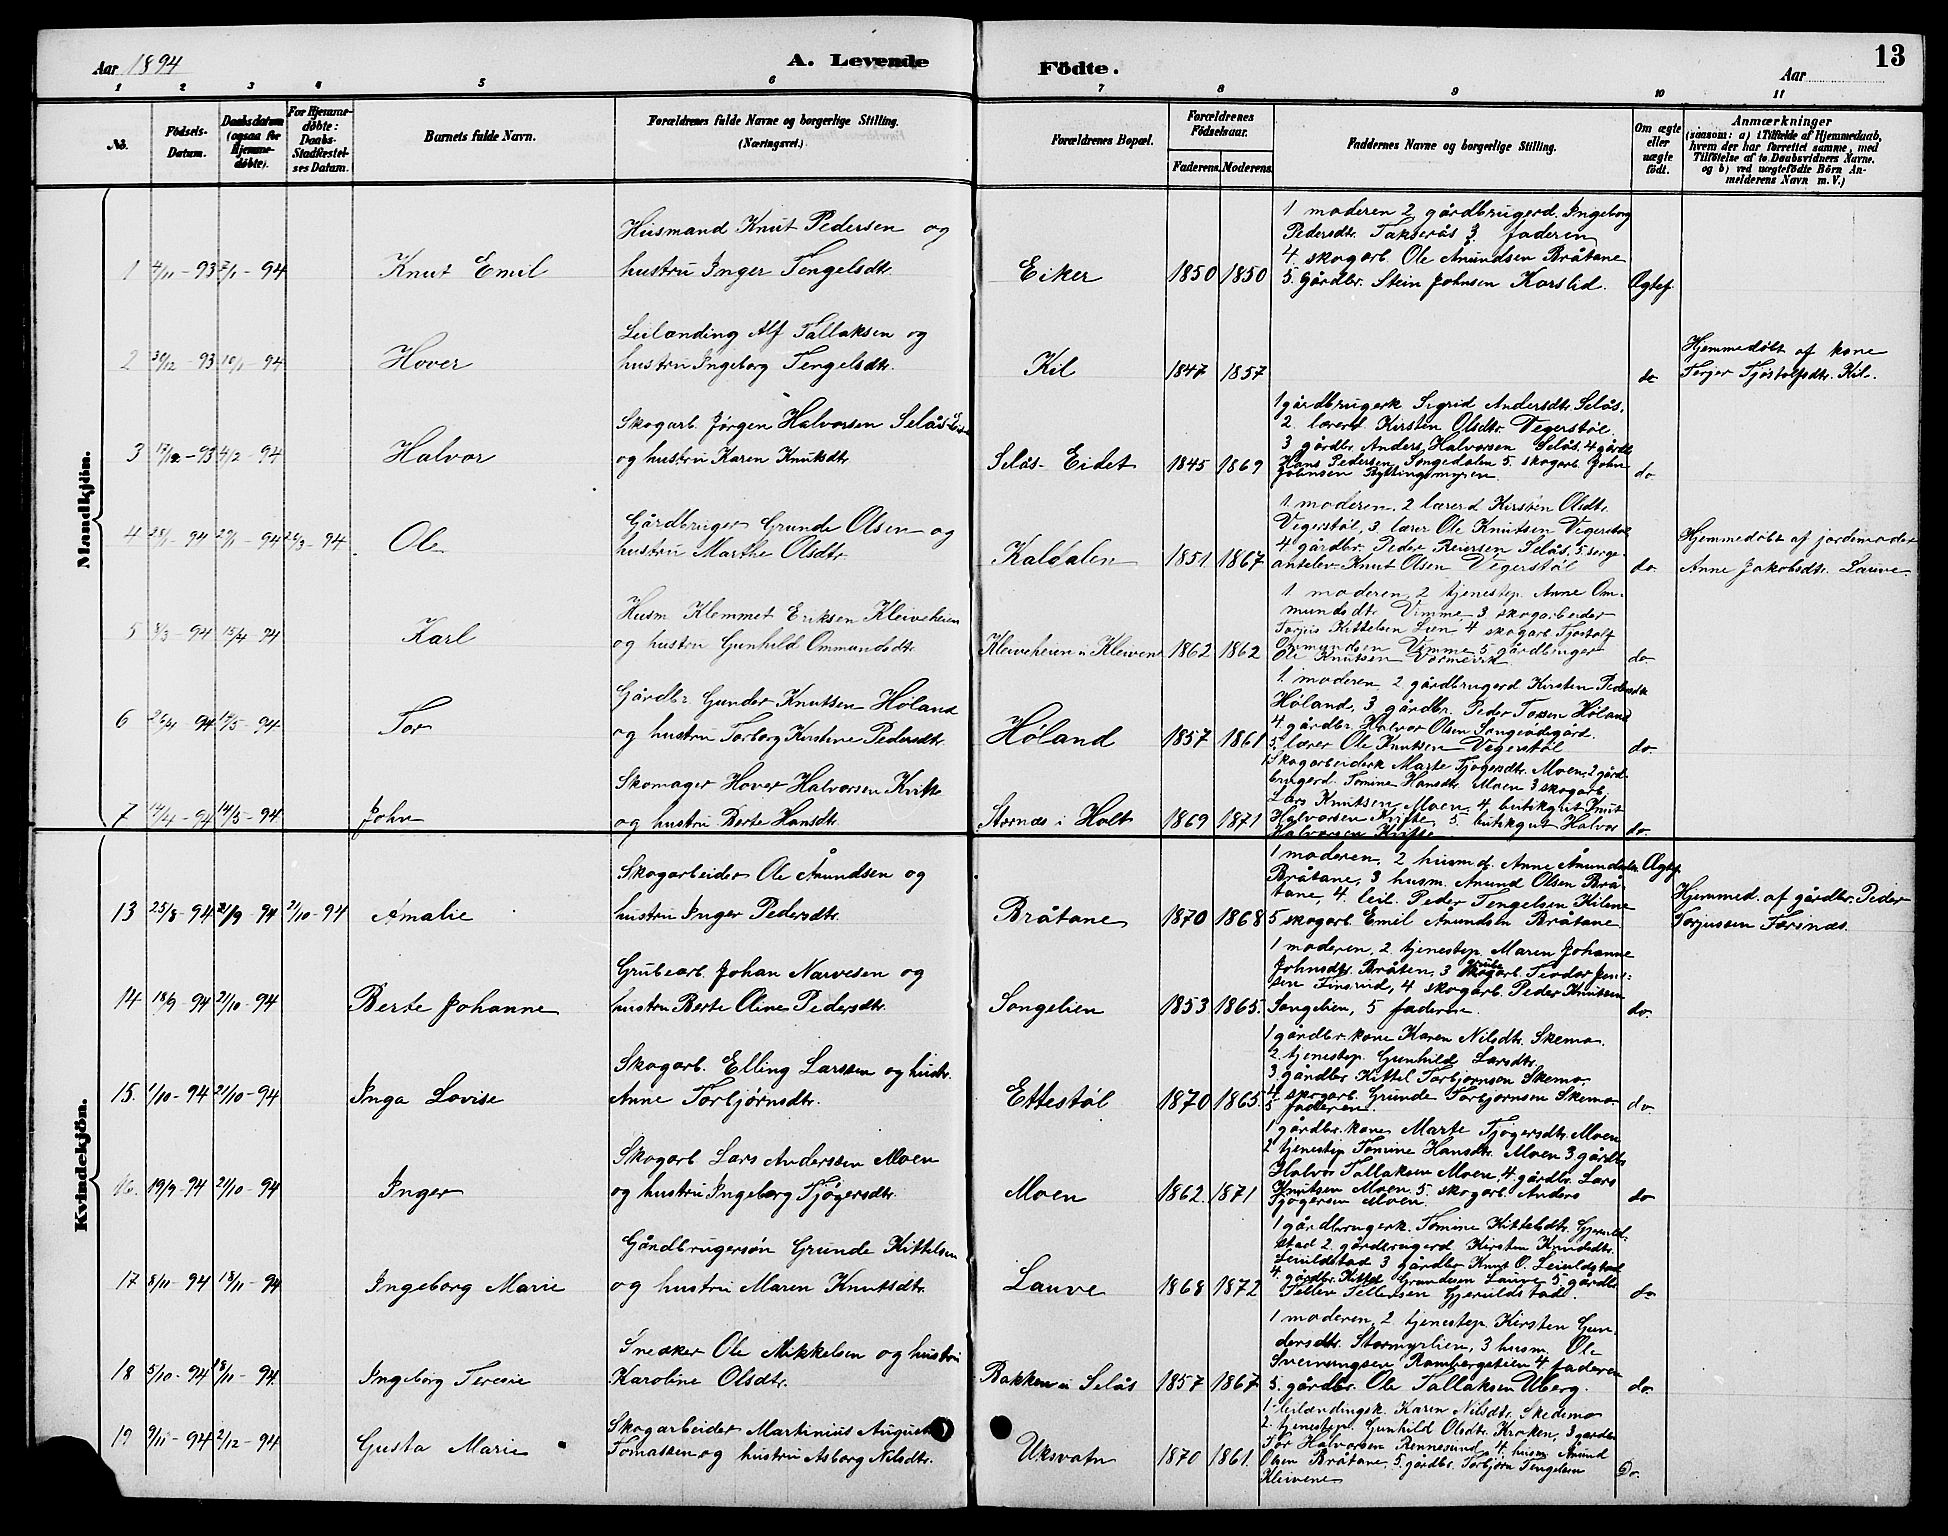 Aar 1894
A. Levende
Födte.
Aar
13
1 2 3 4 5 6 7 8 9 10 11
No.
Födsels-Datum.
Daabsdatum (ogsaa for Hjemme-döbte).
For Hjemme-döbte: Daabs-Stadfæstel-ses Datum.
Barnets fulde Navn.
Forældrenes fulde Navne og borgerlige Stilling. (Næringsvei.)
Forældrenes Bopæl.
Forældrenes Födselsaar.
Faderens. Moderens.
Faddernes Navne og borgerlige Stilling.
Om ægte eller uægte født.
Anmærkninger
(saasom: a) i Tilfælde af Hjemmedaab, hvem der har forrettet samme, med Tilföielse af to Daabsvidners Navne. og b) ved uægtefödte Börn An-melderens Navn m. V.)
Mandkjön.
1 4/11-93 7/1-94 Knut Emil
Husmand Knut Pedersen og
hustru Inger Tengelsdtr.
Eiker 1850 1850
1 moderen 2 gårdbrugerd. Ingeborg
Pedersdtr. Takserås 3. faderen
4. skogarb. Ole Anundsen Bråtane
5. Gårdbr. Stein Johnsen Korslid.
Ægtef.
2 30/12-93 10/1-94 Hover
Leilænding Alf Tallaksen og
hustru Ingeborg Tengelsdtr.
Kil 1847 1857
do
Hjemmedøbt af kone
Torjer Tjøstolfsdtr. Kil.
3 17/12-93 4/2-94 Halvor
Skogarb. Jørgen Halvorsen Selås
og hustru Karen Knutsdtr
Selås-Eidet 1845 1869
1 gårdbrugerk Sigrid Andersdtr. Selås.
2. lærerd Kirsten Olsdtr. Vegerstøl.
3 gårdbr. Anders Halvorsen Selås. 4 gårdb
Hans Pedersen Songedalen 5. skogarb John
Johnsen Ryttingsmyren.
do
4 28/1-94 29/1-94 26/3-94 Ole
Gårdbruger Grunde Olsen og
hustru Marthe Olsdtr.
Kaldalen 1851. 1867
1. moderen, 2 lærerd Kirsten Olsdtr.
Vegerstøl, 3 lærer Ole Knutsen Vegerstøl
4 gårdbr. Peder Reiersen Selås, 5. serge-
antelev Knut Olsen Vegerstøl
do.
Hjemmedøbt af jordemoder
Anne Jakobsdtr. Lauve.
5 8/3-94 15/4-94 Karl
Husm Klemmet Eriksen Kleiveheien
og hustru Gunhild Ommundsdtr.
Kleiveheien u Kleivene 1862 1862
1 moderen, 2 tjenestep. Anne Om-
mundsdtr. Vimme 3 skogarbeider
Torjus Kittelsen Lien 4 skogarb. Tjøstolf
Ommundsen Vimme 5 gårdbruger
Ole Knutsen Vormevik
do
6 26/4-94 14/5-94 Tor
Gårdbr Gunder Knutsen Høland
og hustru Torborg Kirstine Pedersdtr.
Høland 1857 1861
1. moderen, 2 gårdbrugerd Kirsten Pedersdtr
Høland, 3 gårdbr. Peder Torsen Høland
4. gårdbr. Halvor Olsen Songeødegård.
5. lærer Ole Knutsen Vegerstøl
do.
7 14/4-94 14/5-94 John
Skomager Hover Halvorsen Kvifte
og hustru Berte Hansdtr.
Stornæs i Holt 1869 1871
1 Skogarbeiderk Marte Tjøgersdtr. Moen, 2 gård-
brugerd. Tomine Hansdtr. Moen 3 skogarb.
Lars Knutsen Moen, 4. butikgut Knut
Halvorsen Kvifte, 5. butikgut Halvor
Halvorsen Kvifte
do.
Kvindekjön.
13 25/8-94 21/9-94 21/10-94 Amalie
Skogarbeider Ole Ånundsen og
hustru Inger Pedersdtr.
Bråtane 1870 1868
1 moderen, 2 husmd. Anne Ånundsdtr.
Bråtane, 3 husm. Anund Olsen Brå-
tane, 4. leil. Peder Tengelsen Kilene
5 skogarb. Emil Anundsen Bråtane
Ægtef.
Hjemmed. af gårdbr. Peder
Torjussen Torsnæs.
14 18/9-94 21/10-94 Berte Johanne
Grubearb. Johan Narvesen og
hustru Berte Oline Pedersdtr.
Songelien 1853 1865.
1 moderen, 2. tjenestep. Maren Johanne
Johnsdtr. Bråten, 3 grube
skogarb. Teodor Jen-
sen Finsrud, 4 skogarb. Peder Knutsen
Songelien, 5 faderen.
do.
15. 1/10-94 21/10-94 Inga Lovise
Skogarb. Elling Larssen og hustr.
Anne Torbjørnsdtr.
Ettestøl 1870 1865.
1 gårdbr. kone Karen Nilsdtr. Skemo.
2. tjenestep. Gunhild Larsdtr.
3. gårdbr. Kittel Torbjørnsen Skemo.
4. skogarb. Grunde Torbjørnsen Skemo.
5 faderen.
do
16. 19/9-94 21/10-94 Inger
Skogarb Lars Anderssen Moen
og hustru Ingeborg Tjøgersdtr.
Moen 1862. 1871
1 gårdbr. kone Marte Tjøgersdtr. Moen
2 tjenestep Tomine Hansdtr. Moen 3. gårdb
Halvor Tallaksen Moen, 4. gårdbr. Lars
Knutsen Moen, 5. skogarb. Anders
Tjøgersen Moen.
do
17 8/11-94 18/11-94 Ingeborg Marie
Gårdbrugersøn Grunde Kittelsen
og hustru Maren Knutsdtr.
Lauve 1868 1872
1 gårdbrugerk. Tomine Kittelsdtr. Gjeruld-
stad 2. gårdbrugerd Kirsten Knudsdtr.
Leiuldstad 3 gårdbr Knut O. Leiuldstad
4. gårdbr. Kittel Grundesen Lauve 5. gårdbr.
Tellev Tellevsen Gjeruldstad.
do
18 5/10-94 18/11-94. Ingeborg Teresie
Snedker Ole Mikkelsen og hustru
Karoline Olsdtr.
Bakken u Selås 1857 1867
1 moderen, 2 tjenestep. Kirsten Gun-
dersdtr. Stormyrlien, 3 husm. Ole
Sveinungsen Rambergsteien 4. faderen
5. gårdbr. Ole Tallaksen Uberg.
do.
19 9/11-94 2/12-94 Gusta Marie
Skogarbeider Martinius August
Tomassen og hustru Asborg Nilsdtr.
Uksvatn 1870 1861.
1. leilændingsk. Karen Nilsdtr. Skedemo
2. tjenestep. Gunhild Olsdtr. Kroken, 3 gårdbr
Tor Halvorsen Rennesund 4. husm Ånund
Olsen Bråtane, 5. gårdbr. Torbjørn Tengelsen
Kleivene
Do.